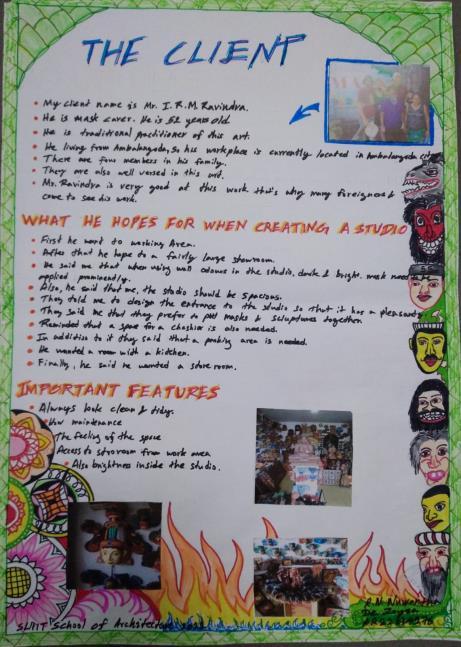 THE CLIENT
My client name is Mr. I. R. M Ravindra.
He is mask carver. He is 52 years old
He is traditional practitioner of this art.
He living from Ambalangoda, So his workplace is currently located in Ambalangoda city
There are few members in his family.
They are also well versed in this art.
Mr. Ravindra is very good at this work that's why many foreigners
come to see his work.
WHAT HE HOPES FOR WHEN CREATING A STUDIO
First he want to working Area.
After that he hope to a fairly large showroom.
He said me that when using wall colours in the studio, dark & bright. mask need
applied prominently.
Also, he said that me, the studio should be spacious.
They told me to design the entrance to the studio so that it has a pleasant
They said me that they prefer to put masks & sculptures together
Reminded that a space for a cashier is also needed.
In addition to it they said that a parking area is needed.
He wanted a room with a kitchen.
Finally, he said he wanted a store room.
IMPORTANT FEATURES
Always look clean & tidy.
How maintenance
The feeling of the space
Access to storroom from work area
Also brightness inside the studio.
SLIIT School of Architecture